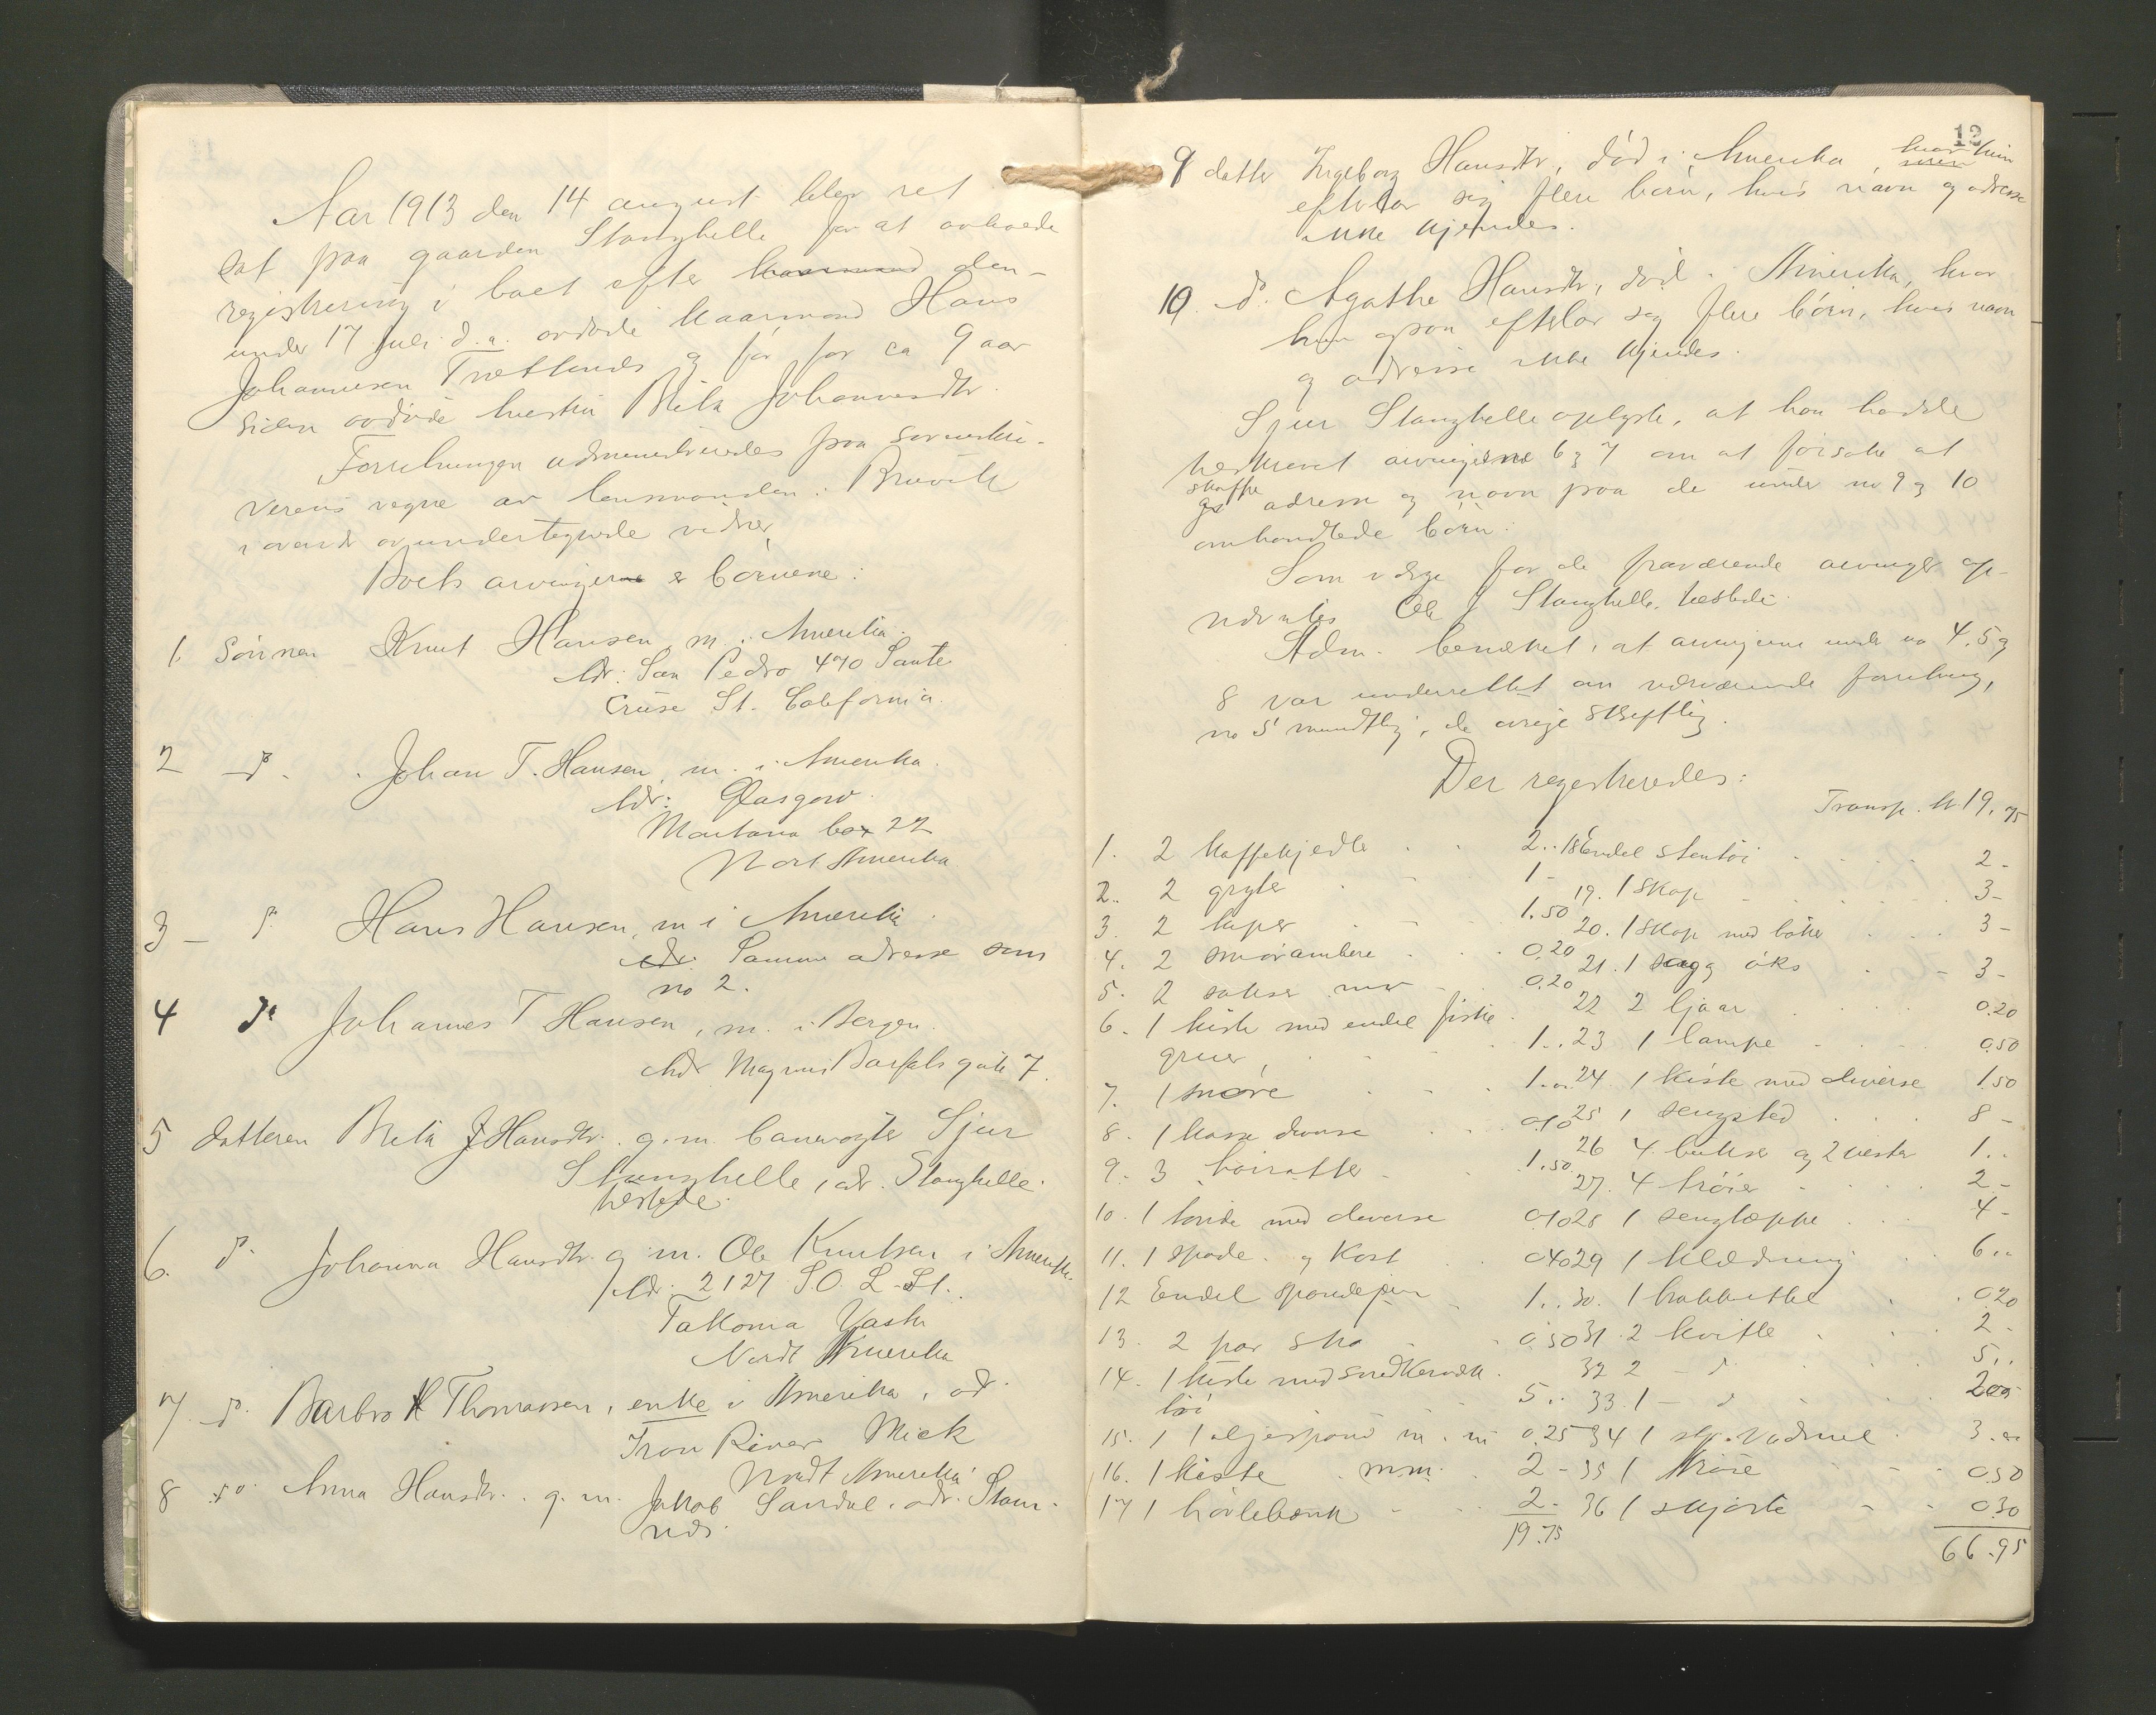 Aar 1913 den 14 august blev ret
sat paa gaarden Stanghelle for at avholde
registrering i boet efter kaarmand den-
under 17 juli d. a. avdøde kaarmand Hans
Johannesen Trætlands og for for ca 9 aar
siden avdøde hustru Brita Johannesdtr.
Forretningen administreredes paa sorenskri-
verens vegne av lensmanden i Bruvik
i overvær av undertegnede vidner,
Boets arvingerne er børnene:
1. Sønnen Knut Hansen, m. i Amerika.
Adr: San Pedro 470 Santa
Cruse St. California.
2 do. Johan T. Hansen, m. i Amerika.
Adr: Glasgow.
Montana box 22
Nort Amerika
3 - do. Hans Hansen, m i Amerika.
adr. Samme adresse som
no 2.
4 do Johannes T Hansen, m. i Bergen.
Adr Magnus Barfots gate 7.
5 datteren Brita J Hansdtr. g. m. banevogter Sjur
Stanghelle, adr. Stanghelle
herstede.
6. do. Johanna Hansdtr. g. m. Ole Knutsen i Amerika.
Adr: 2127 SO. L-St.
Takoma Vash
Nordt Amerika
7. do. Barbro H Thomassen, enke i Amerika, ad.
Iron River Mick
Nordt Amerika
8 do. Anna Hansdtr. g. m. Jakob Sandal. adr. Stam-
nes.
12
9 datter Ingeborg Hansdtr, død i Amerika, hvor hun
efterlar sig flere børn, hvis navn og adresse
ikke kjendes.
10. do. Agathe Hansdtr, død i Amerika, hvor
hun ogsaa efterlar sig flere børn, hvis navn
og adresse ikke kjendes.
Sjur Stanghelle oplyste, at han hadde
tilskrevet arvingerne 6 og 7 om at forsøke at
skaffe
adresse og navn paa de under no 9 og 10
omhandlede børn.
Som verge for de fraværende arvinger op-
nævntes Ole J Stanghelle, herstede.
Adm. bemerket, at arvingerne under no 4, 5 og
8 var underrettet om nærværende forretning,
no 5 mundtlig, de øvrige skriftlig.
Der registreredes:
Transp. kr 19,75
1. 2 kaffekjedle . . 2.. 18 Endel stentøi . . . 2-
2. 2 gryter . . 1- 19. 1 skap . . . 3-
3. 2 taper . . 1.50 20. 1 skap med bøker . . 3-
4. 2 smørambere . . 0,20 21. 1 sag og øks . - 3-
5. 2 sakser mv - 0,20 22 2 ljaar . . . 0.20
6. 1 kiste med endel fiske
greier . . . 1.. 23 1 lampe . . . 0,50
7. 1 snøre . . . 1... 24. 1 kiste med diverse 1.50
8. 1 kasse diverse . . 0.10 25 1 sengsted . . . 8-
9. 3 høiratter . 1.50. 26 4 bukser og 2 vester 1..
10. 1 tønde med diverse 0.10 27. 4 trøier . . . 2-
11. 1 spade og kost . 0.40 28 1 sengtæppe . . . 4-
12 Endel 1.. 29 1 klædning . . 6..
13. 2 par sko . 0.50 30. 1 hakkettel . . 0.20
14. 1 kiste med snedkerverk
tøi 5.. 31. 2 kvitle . . . 2-
32 2 - do . . . 5..
33. 1 - do . . . 2.00
15. 1 m. m 0.25 34 1 stk. vadmel . 3...
16. 1 kiste . mm. . 2- 35 1 trøie . . . 0.50
17 1 høvlebænk . . 2- 36 1 skjorte . . . 0.30
19.75
66.95